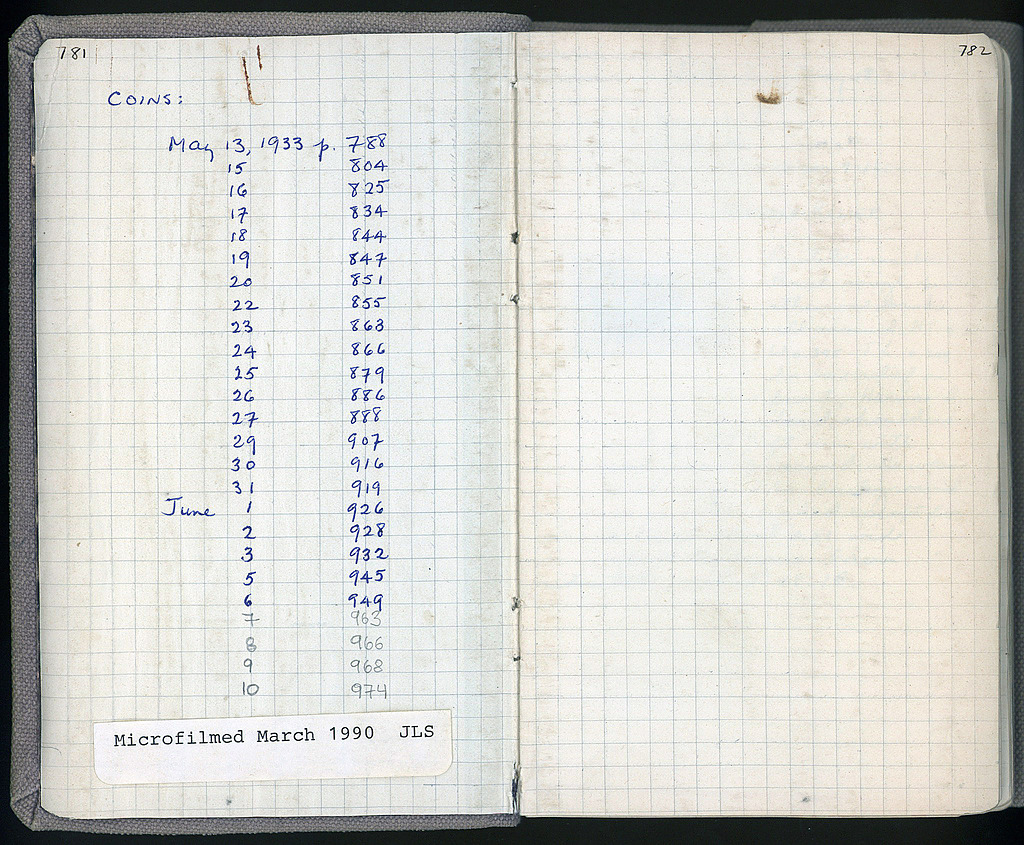 781
COINS:
May 13, 1933 p. 788
15 804
16 825
17 834
18 844
19 847
20 851
22 855
23 863
24 866
25 879
26 886
27 888
29 907
30 916
31 919
June 1 926
2 928
3 932
5 945
6 949
7 963
8 966
9 968
10 974
Microfilmed March 1990 JLS
782